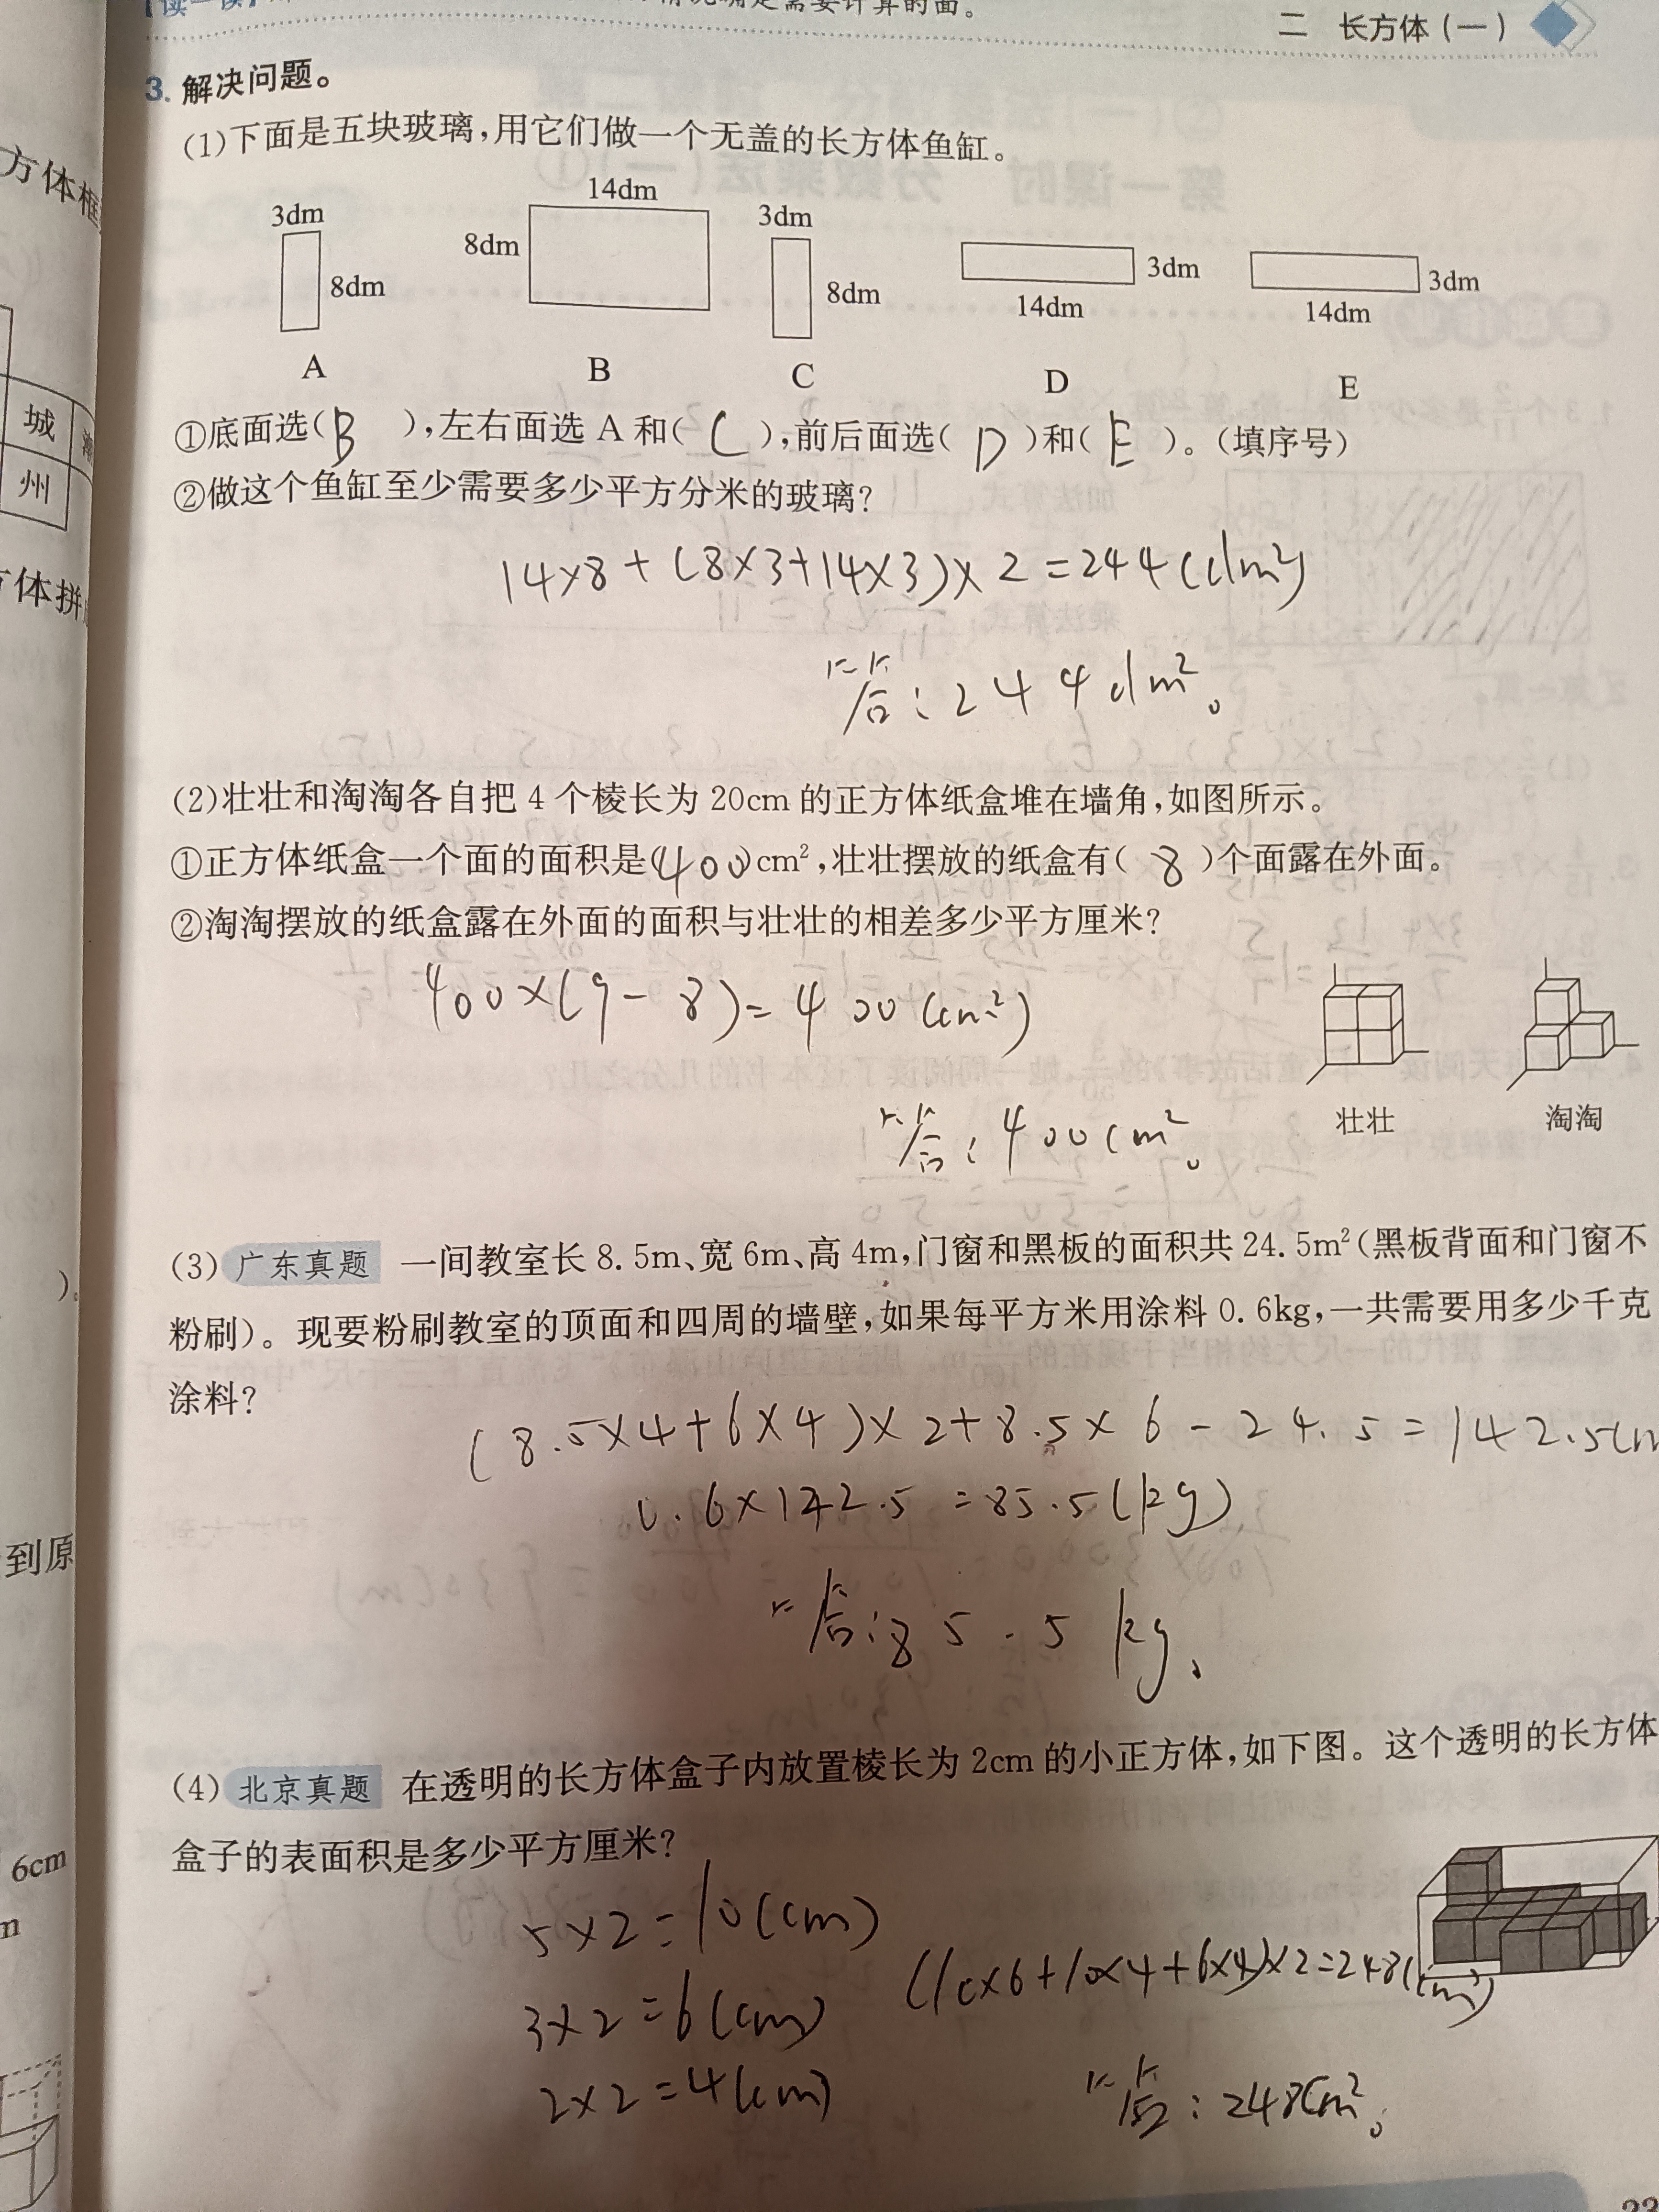 情况确定需要计算的面。
二 长方体(一)
3. 解决问题。
(1)下面是五块玻璃,用它们做一个无盖的长方体鱼缸。
3dm 8dm A
14dm 8dm B
3dm 8dm C
3dm 14dm D
3dm 14dm E
①底面选( B ),左右面选 A 和( C ),前后面选( D )和( E )。(填序号)
②做这个鱼缸至少需要多少平方分米的玻璃?
14×8+(8×3+14×3)×2=244(dm²)
答:244dm²。
(2)壮壮和淘淘各自把 4 个棱长为 20cm 的正方体纸盒堆在墙角,如图所示。
①正方体纸盒一个面的面积是(400)cm²,壮壮摆放的纸盒有( 8 )个面露在外面。
②淘淘摆放的纸盒露在外面的面积与壮壮的相差多少平方厘米?
400×(9-8)=400(cm²)
答:400cm²。
壮壮 淘淘
(3) 广东真题 一间教室长 8.5m、宽 6m、高 4m,门窗和黑板的面积共 24.5m²(黑板背面和门窗不
粉刷)。现要粉刷教室的顶面和四周的墙壁,如果每平方米用涂料 0.6kg,一共需要用多少千克
涂料?
(8.5×4+6×4)×2+8.5×6-24.5=142.5(m
0.6×142.5=85.5(kg)
答:85.5kg。
(4) 北京真题 在透明的长方体盒子内放置棱长为 2cm 的小正方体,如下图。这个透明的长方体
盒子的表面积是多少平方厘米?
5×2=10(cm)
3×2=6(cm)
2×2=4(cm)
(10×6+10×4+6×4)×2=248(cm²)
答:248cm²。
方体框
城
州
方体拼
)。
到原
6cm